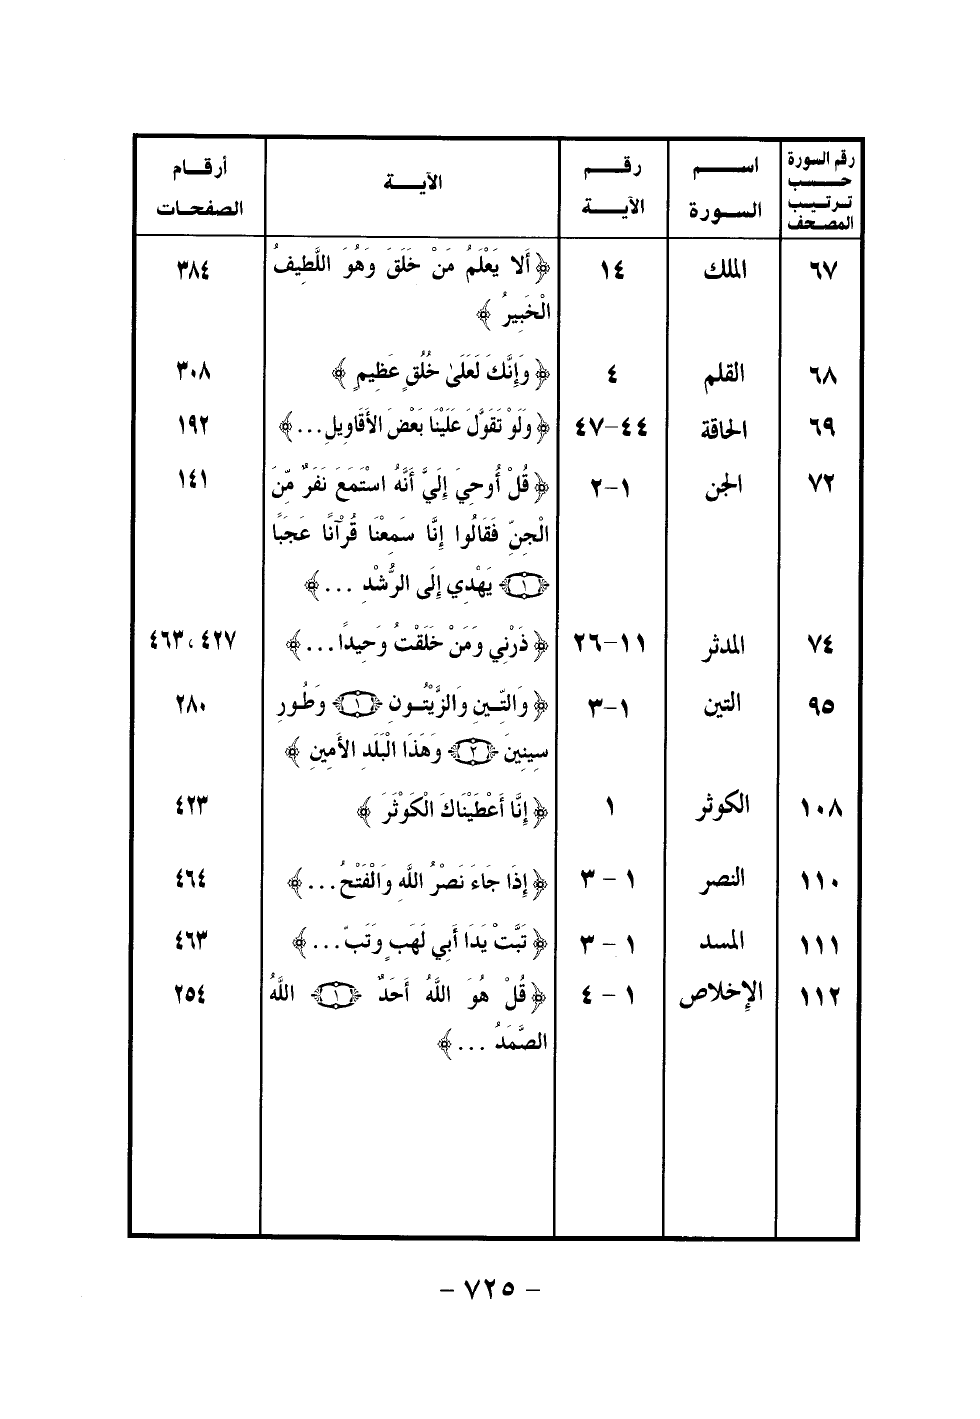 رقم السورة حسب ترتيب المصحف | اسم السورة | رقم الآية | الآية | أرقام الصفحات
٦٧ | الملك | ١٤ | ﴿ أَلا يَعْلَمُ مَنْ خَلَقَ وَهُوَ اللَّطِيفُ | ٣٨٤
الْخَبِيرُ ﴾
٦٨ | القلم | ٤ | ﴿ وَإِنَّكَ لَعَلَىٰ خُلُقٍ عَظِيمٍ ﴾ | ٣٠٨
٦٩ | الحاقة | ٤٤-٤٧ | ﴿ وَلَوْ تَقَوَّلَ عَلَيْنَا بَعْضَ الأَقَاوِيلِ... ﴾ | ١٩٢
٧٢ | الجن | ١-٢ | ﴿ قُلْ أُوحِيَ إِلَيَّ أَنَّهُ اسْتَمَعَ نَفَرٌ مِّنَ | ١٤١
الْجِنِّ فَقَالُوا إِنَّا سَمِعْنَا قُرْآنًا عَجَبًا
﴿١﴾ يَهْدِي إِلَى الرُّشْدِ ... ﴾
٧٤ | المدثر | ١١-٢٦ | ﴿ ذَرْنِي وَمَنْ خَلَقْتُ وَحِيدًا... ﴾ | ٤٢٧ ، ٤٦٣
٩٥ | التين | ١-٣ | ﴿ وَالتِّينِ وَالزَّيْتُونِ ﴿١﴾ وَطُورِ | ٢٨٠
سِينِينَ ﴿٢﴾ وَهَذَا الْبَلَدِ الأَمِينِ ﴾
١٠٨ | الكوثر | ١ | ﴿ إِنَّا أَعْطَيْنَاكَ الْكَوْثَرَ ﴾ | ٤٢٣
١١٠ | النصر | ١ - ٣ | ﴿ إِذَا جَاءَ نَصْرُ اللَّهِ وَالْفَتْحُ... ﴾ | ٤٦٤
١١١ | المسد | ١ - ٣ | ﴿ تَبَّتْ يَدَا أَبِي لَهَبٍ وَتَبَّ... ﴾ | ٤٦٣
١١٢ | الإخلاص | ١ - ٤ | ﴿ قُلْ هُوَ اللَّهُ أَحَدٌ ﴿١﴾ اللَّهُ | ٢٥٤
الصَّمَدُ ... ﴾
- ٧٢٥ -